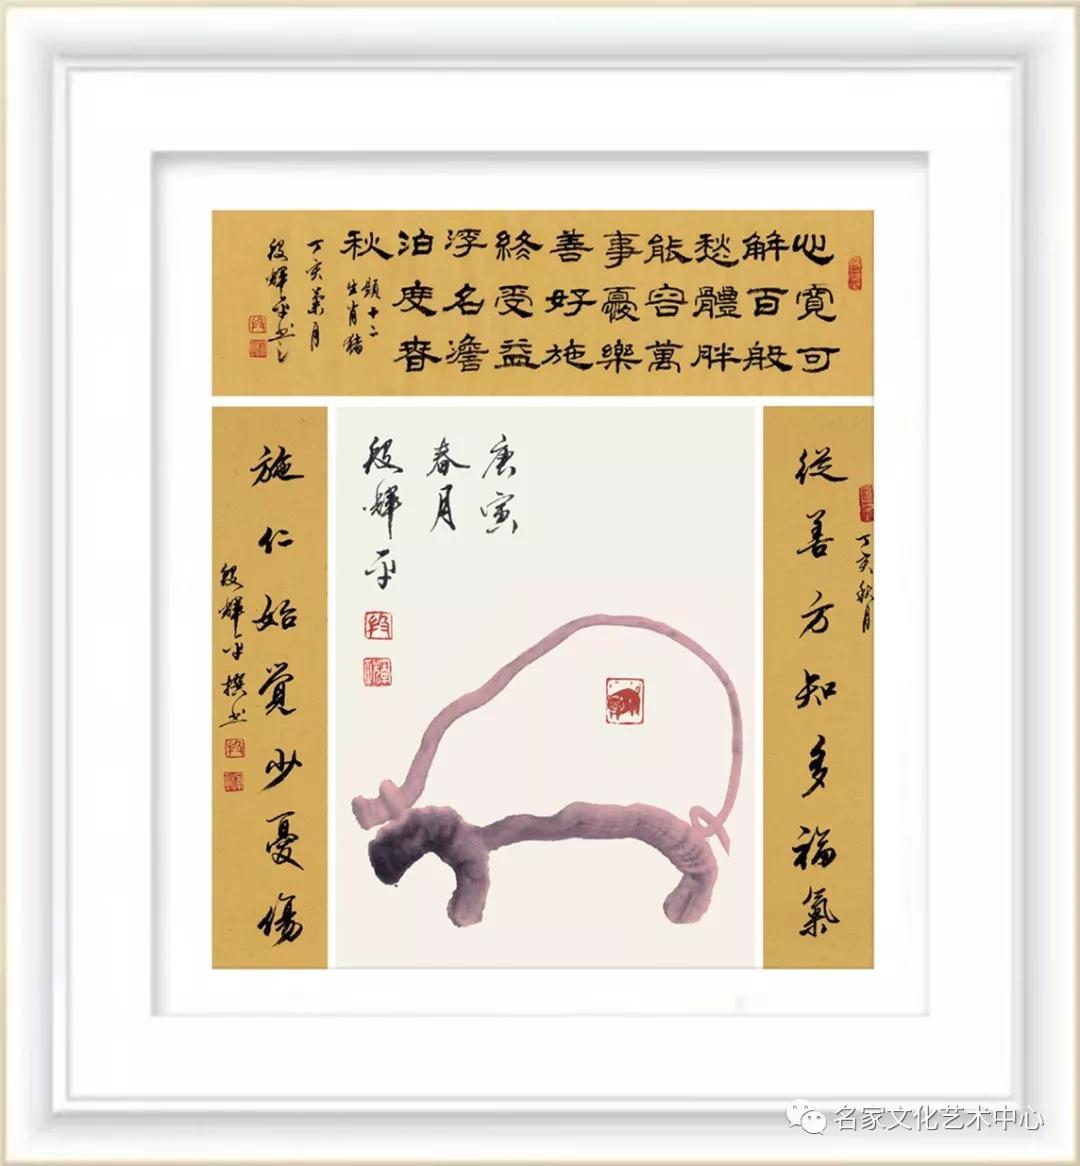 心寬可
解百般
愁體胖
能容萬
事憂樂
善好施
終受益
浮名澹
泊度春
秋
題十二
生肖豬
丁亥菊月
段輝平书之
從善方知多福氣
丁亥秋月
施仁始觉少憂傷
段輝平撰书
庚寅
春月
段輝平
名家文化艺术中心